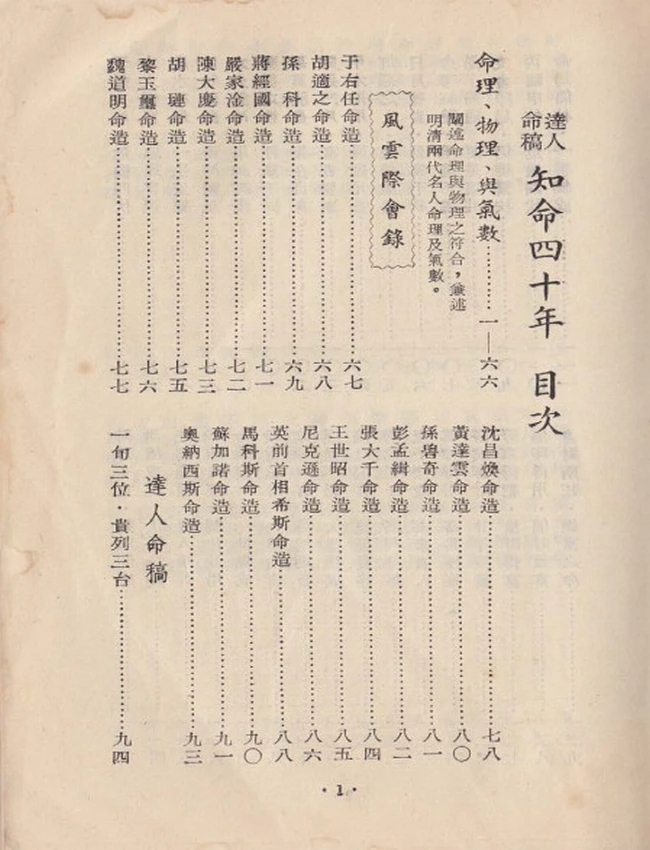 達人命稿 知命四十年 目次
命理、物理、與氣數……一—六六
闡述命理與物理之符合，兼述
明清兩代名人命理及氣數。
風雲際會錄
于右任命造……六七
胡適之命造……六八
孫　科命造……六九
蔣經國命造……七一
嚴家淦命造……七二
陳大慶命造……七三
胡　璉命造……七五
黎玉璽命造……七六
魏道明命造……七七
沈昌煥命造……七八
黃達雲命造……八〇
孫碧奇命造……八一
彭孟緝命造……八二
張大千命造……八四
王世昭命造……八五
尼克遜命造……八六
英前首相希斯命造……八八
馬科斯命造……九〇
蘇加諾命造……九一
奧納西斯命造……九三
達人命稿
一旬三位．貴列三台……九四
·1·